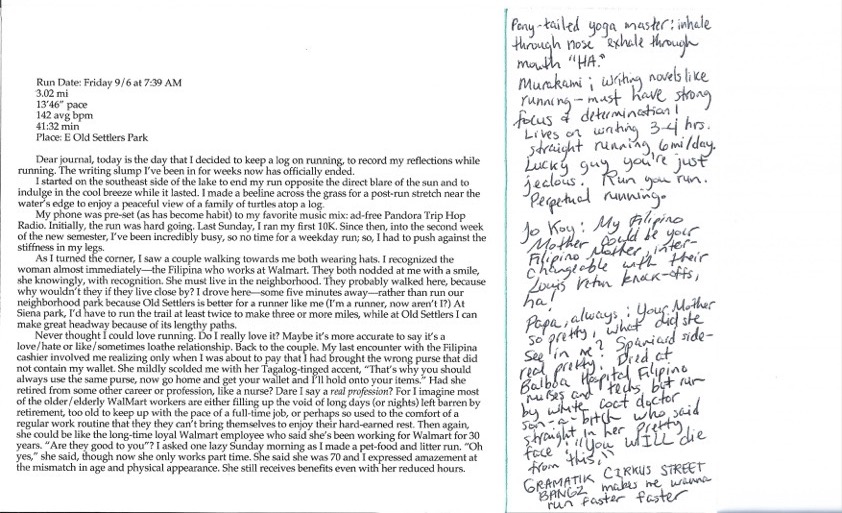 Run Date: Friday 9/6 at 7:39 AM
3.02 mi
13'46" pace
142 avg bpm
41:32 min
Place: E Old Settlers Park
Dear journal, today is the day that I decided to keep a log on running, to record my reflections while
running. The writing slump I've been in for weeks now has officially ended.
I started on the southeast side of the lake to end my run opposite the direct blare of the sun and to
indulge in the cool breeze while it lasted. I made a beeline across the grass for a post-run stretch near the
water's edge to enjoy a peaceful view of a family of turtles atop a log.
My phone was pre-set (as has become habit) to my favorite music mix: ad-free Pandora Trip Hop
Radio. Initially, the run was hard going. Last Sunday, I ran my first 10K. Since then, into the second week
of the new semester, I've been incredibly busy, so no time for a weekday run; so, I had to push against the
stiffness in my legs.
As I turned the corner, I saw a couple walking towards me both wearing hats. I recognized the
woman almost immediately—the Filipina who works at Walmart. They both nodded at me with a smile,
she knowingly, with recognition. She must live in the neighborhood. They probably walked here, because
why wouldn't they if they live close by? I drove here—some five minutes away—rather than run our
neighborhood park because Old Settlers is better for a runner like me (I'm a runner, now aren't I?) At
Siena park, I'd have to run the trail at least twice to make three or more miles, while at Old Settlers I can
make great headway because of its lengthy paths.
Never thought I could love running. Do I really love it? Maybe it's more accurate to say it's a
love/hate or like/sometimes loathe relationship. Back to the couple. My last encounter with the Filipina
cashier involved me realizing only when I was about to pay that I had brought the wrong purse that did
not contain my wallet. She mildly scolded me with her Tagalog-tinged accent, "That's why you should
always use the same purse, now go home and get your wallet and I'll hold onto your items." Had she
retired from some other career or profession, like a nurse? Dare I say a real profession? For I imagine most
of the older/elderly WalMart workers are either filling up the void of long days (or nights) left barren by
retirement, too old to keep up with the pace of a full-time job, or perhaps so used to the comfort of a
regular work routine that they they can't bring themselves to enjoy their hard-earned rest. Then again,
she could be like the long-time loyal Walmart employee who said she's been working for Walmart for 30
years. "Are they good to you"? I asked one lazy Sunday morning as I made a pet-food and litter run. "Oh
yes," she said, though now she only works part time. She said she was 70 and I expressed amazement at
the mismatch in age and physical appearance. She still receives benefits even with her reduced hours.
Pony-tailed yoga master: inhale
through nose exhale through
mouth "HA."
Murakami; writing novels like
running – must have strong
focus & determination!
Lives on writing 3-4 hrs.
straight running 6mi/day.
Lucky guy you're just
jealous. Run you run.
Perpetual running.
Jo Koy: My Filipino
Mother could be your
Filipino Mother, inter-
changeable with their
Louis Vuton knock-offs,
ha!
Papa, always: Your Mother
so pretty, what did she
see in me? Spaniard side-
real pretty. Died at
Balboa Hospital Filipino
nurses and techs but run
by white coat doctor
son-a-bitch who said
straight in her pretty
face "You WILL die
from this."
GRAMATIK CIRKUS STREET
BANGZ makes me wanna
run faster faster